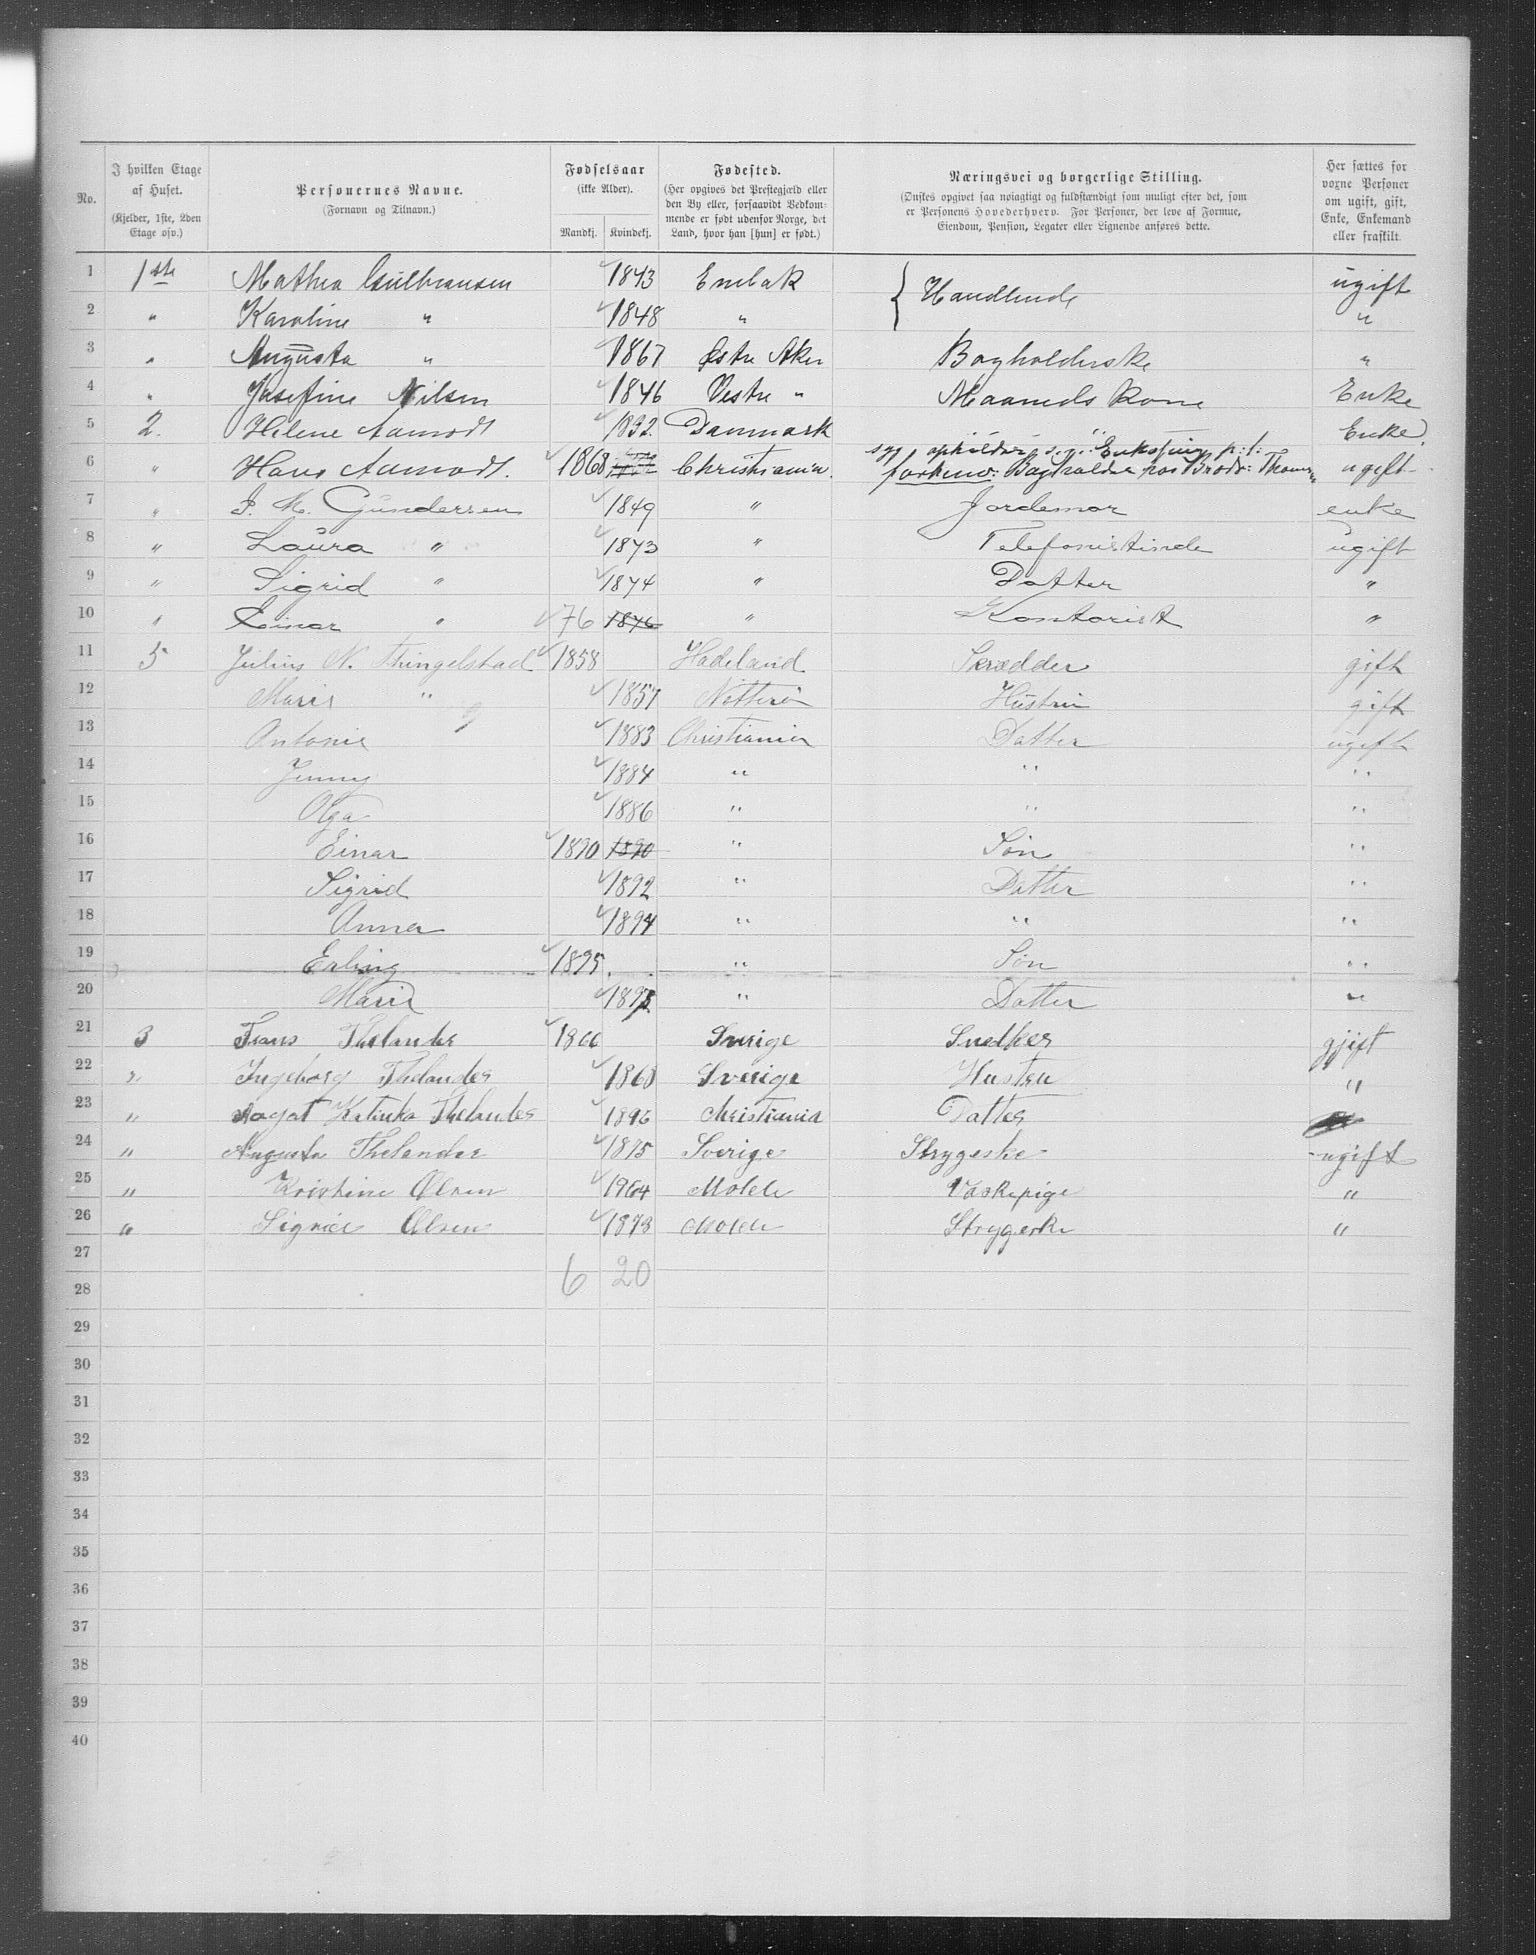 No.
I hvilken Etage af Huset. (Kjelder, 1ste, 2den Etage osv.)
Personernes Navne. (Fornavn og Tilnavn.)
Fødselsaar (ikke Alder). Mandkj. Kvindekj.
Fødested. (Her opgives det Prestegjæld eller den By eller, forsaavidt Vedkommende er født udenfor Norge, det Land, hvor han [hun] er født.)
Næringsvei og borgerlige Stilling. (Ønskes opgivet saa nøiagtigt og fuldstændigt som muligt efter det, som er Personens Hovederhverv. For Personer, der leve af Formue, Eiendom, Pension, Legater eller Lignende anføres dette.
Her sættes for voxne Personer om ugift, gift, Enke, Enkemand eller fraskilt.
1 1ste Mathea Gulbransen 1843 Enebak { Handlende ugift
2 " Karoline " 1848 " "
3 " Augusta " 1867 Østre Aker Bogholderske "
4 " Josefine Nilsen 1846 Vestre " Maaneds Kone Enke
5 2. Helene Aamodt 1832. Danmark Enke.
6 " Hans Aamodt. 1868 Christiania. forhenv: Bogholder hos Brødr: ugift
7 " J. M. Gundersen 1849 " Jordemor enke
8 " Laura " 1873 " Telefonistinde ugift
9 " Sigrid " 1874 " Datter "
10 " Einar " 76 1876 " Kontorist "
11 5 Julius N. Thingelstad 1858 Hadeland Skrædder gift
12 Marie " 1857 Nötterö Hustru gift
13 Antonie 1883 Christiania Datter ugift
14 Jenny 1884 " " "
15 Olga 1886 " " "
16 Einar 1890 1890 " Sön "
17 Sigrid 1892 " Datter "
18 Anna 1894 " " "
19 Erling 1895 " Sön "
20 Marie 1898 " Datter "
21 3 Frans Thelander 1866 Sverige Snedker gjift
22 " Ingeborg Thelander 1868 Sverige Hustru "
23 " Katinka Thelander 1896 Christiania Datter
24 " Augusta Thelander 1875 Sverige Strygeske ugift
25 " Kristine Olsen 1964 Molde Vaskepige "
26 " Sigrid Olsen 1878 Molde Strygerske "
27
28 6 20
29
30
31
32
33
34
35
36
37
38
39
40